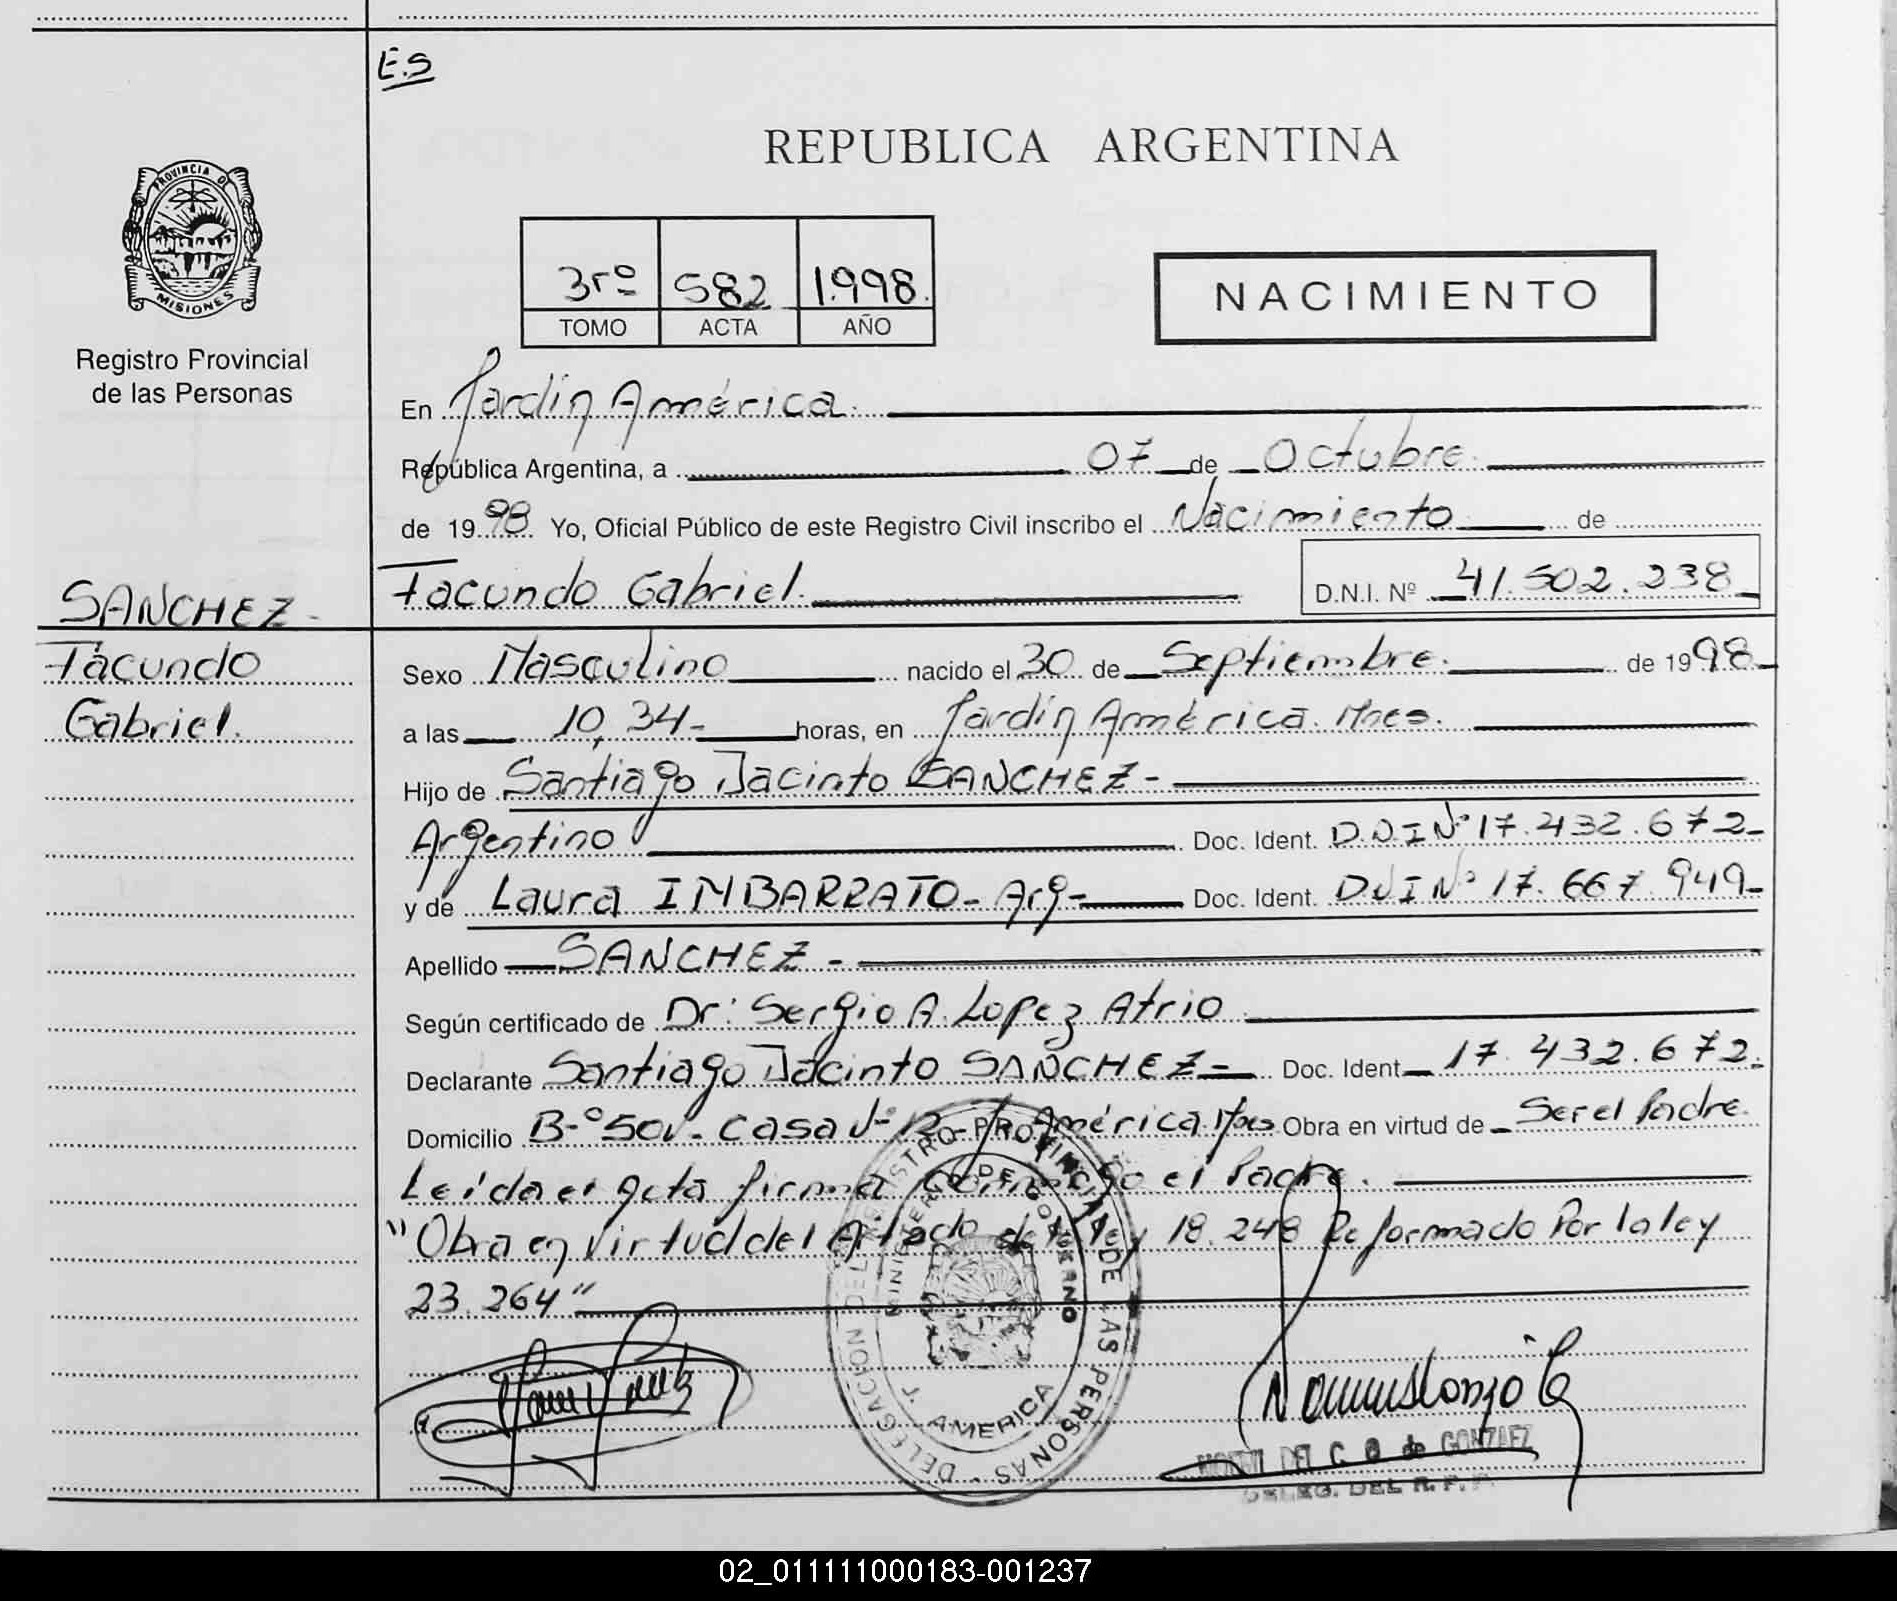 E.S
PROVINCIA DE
MISIONES
Registro Provincial
de las Personas
REPUBLICA ARGENTINA
3rº 582 1.998.
TOMO ACTA AÑO
NACIMIENTO
En Jardín América.
República Argentina, a 07 de Octubre.
de 19 98 Yo, Oficial Público de este Registro Civil inscribo el Nacimiento de
Facundo Gabriel. D.N.I. Nº 41.502.238
SANCHEZ-
Facundo
Gabriel.
Sexo Masculino nacido el 30 de Septiembre. de 19 98
a las 10,34- horas, en Jardín América. Mnes.
Hijo de Santiago Jacinto SANCHEZ-
Argentino Doc. Ident. D.N.I Nº 17.432.672-
y de Laura IMBARRATO- Arg- Doc. Ident. D.N.I Nº 17.667.949-
Apellido SANCHEZ-
Según certificado de Dr: Sergio A. Lopez Atrio
Declarante Santiago Jacinto SANCHEZ- Doc. Ident 17.432.672.
Domicilio B-º 50v- Casa América Mnes Obra en virtud de Ser el Padre.
Leída el Acta firma conmigo el Padre.
"Obra en Virtud del de la ley 18.248 Reformado Por la ley
23.264"
DELEGACION DEL REGISTRO PROVINCIAL DE LAS PERSONAS
MINISTERIO DE GOBIERNO
J. AMERICA
DEL C. G. de GONZALEZ
DELEG. DEL R. P. P.
02_011111000183-001237